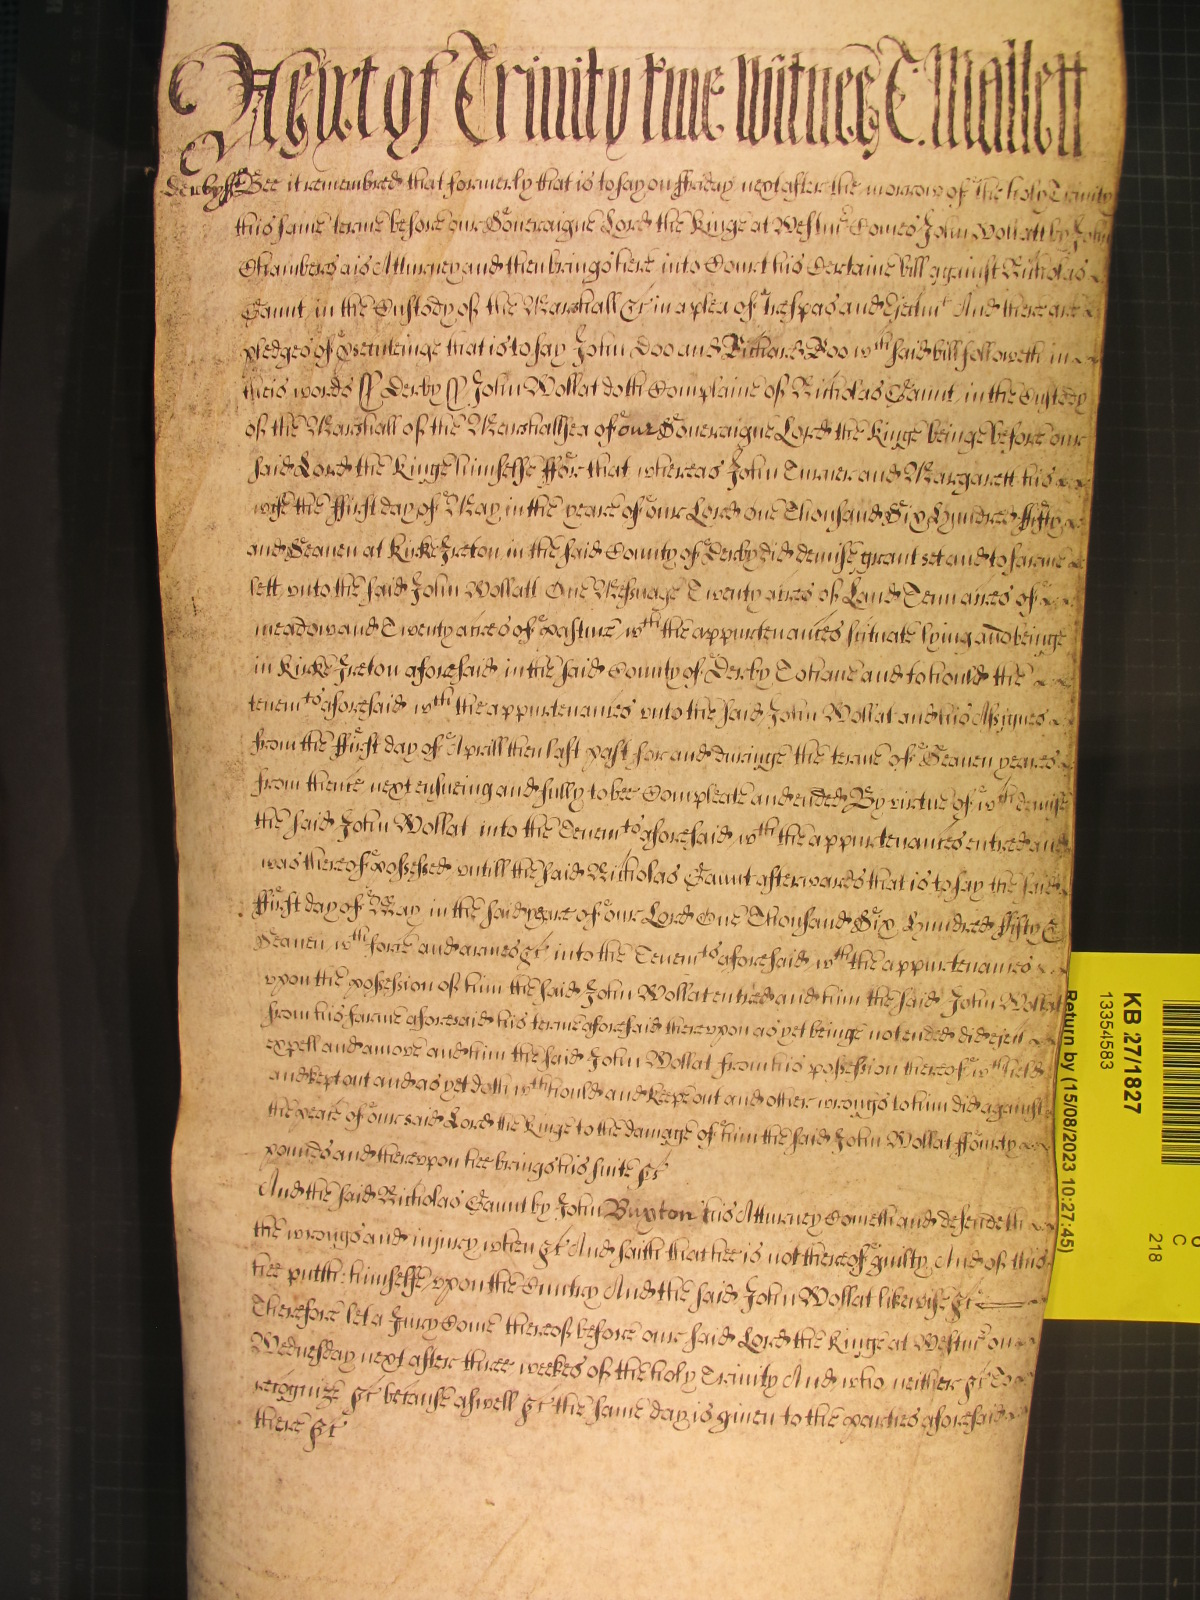 As yet of Trinity tme Witnes T: Mallett
Derbyss Bee it remembred that formerly that is to say on ffriday next after the morrow of the holy Trinity
this same terme before our Soveraigne Lord the Kinge at Westmr Comes John Wollatt by John
Chambers his Atturney and then brings here into Court his Certaine bill against Nicholas
Gaunt in the Custody of the Marshall &c in a plea of Trespas and Ejectmt And there are
pledges of psecuteinge that is to say John Doo and Richard Roo wch said bill followeth in
theis words ss Derby ss John Wollat doth Complaine of Nicholas Gaunt in the Custody
of the Marshall of the Marshallsea of our Soveraigne Lord the Kinge beinge before our
said Lord the Kinge himselfe ffor that whereas John Turner and Margarett his
wife the ffirst day of May in the yeare of our Lord one Thousand Six Hundred fifty
and Seaven at Kirke Ireton in the said County of Derby did demise grant set and to farme
lett unto the said John Wollatt One Messuage Twenty acres of Land Tenn acres of
meadow and Twenty acres of pasture wth the appurtenances scituate lying and beinge
in Kirke Ireton aforesaid in the said County of Derby To have and to hould the
tenemts aforesaid wth the appurtenances unto the said John Wollat and his Assignes
from the ffirst day of Aprill then last past for and duringe the terme of Seaven yeares
from thence next ensueing and fully to bee Compleate and ended By virtue of wch demise
the said John Wollat into the Tenemts aforesaid wth the appurtenances entred and
was thereof possessed untill the said Nicholas Gaunt afterwards that is to say the said
ffirst day of May in the said yeare of our Lord One Thousand Six Hundred ffifty &
Seaven wth force and armes &c into the Tenemts aforesaid wth the appurtenances
upon the possession of him the said John Wollat entred and him the said John Wollat
from his farme aforesaid his terme aforesaid thereupon as yet beinge not ended did eject
expell and amove and him the said John Wollat from his possession thereof wthheld
and kept out and as yet doth wthhould and keepe out and other wrongs to him did against
the peace of our said Lord the Kinge to the damage of him the said John Wollat ffourty
pounds and thereupon hee brings his suite &c
And the said Nicholas Gaunt by John Buxton his Atturney Cometh and defendeth
the wrongs and injury when &c And saith that hee is not thereof guilty And of this
hee putth: himselfe upon the Cuntry And the said John Wollat likewise &c
Therefore let a Jury Come thereof before our said Lord the Kinge at Westmr on
Wednesday next after three weekes of the holy Trinity And who neither &c To
recognize &c because aswell &c the same day is given to the parties aforesaid
there &c
KB 27/1827
13354583
Return by (15/08/2023 10:27:45)
C
218